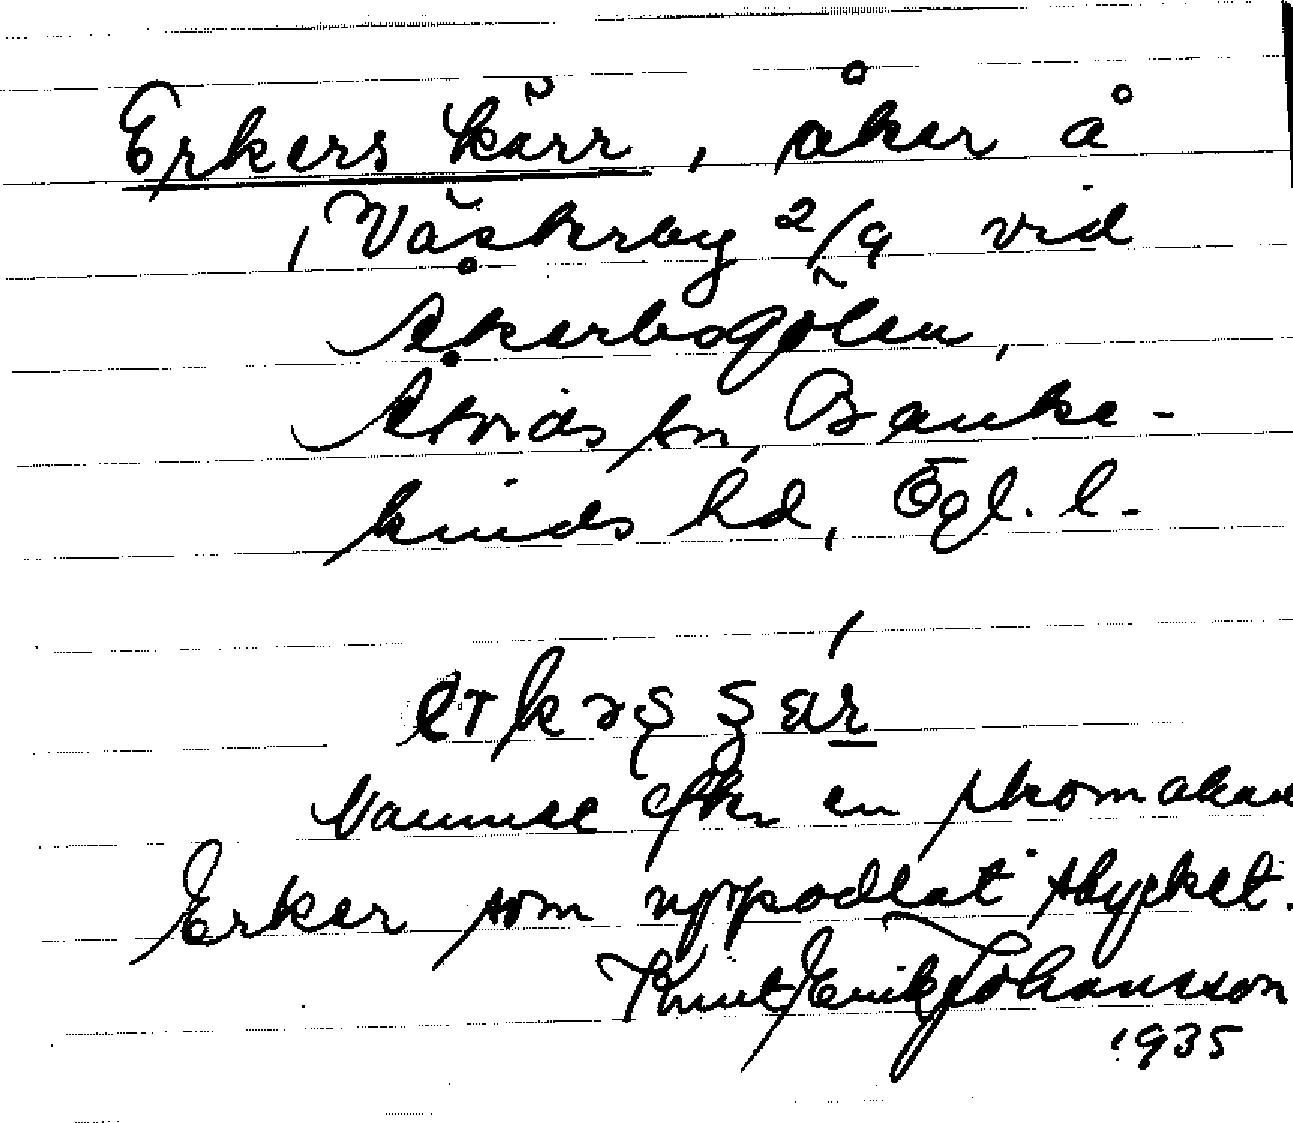 Erkers kärr, åker å
Västerby 2/9 vid
Åkerbogölen,
Åtvids sn, Banke-
kinds hd, Ögl. l.
Namnet efter en skomakare
Erker som uppodlat stycket.
Knut Erik Johansson
1935